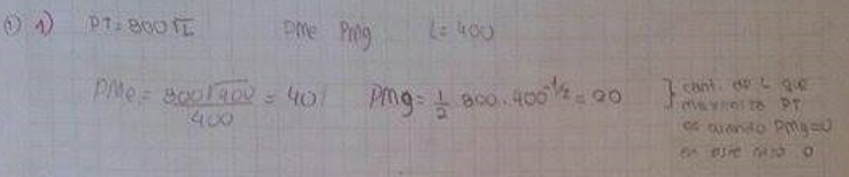 1) PT = 800√L PMe PMg L = 400
PMe = 800√400 / 400 = 40 PMg = 1/2 800 . 400^-1/2 = 20
} cant. de L que
maximiza PT
es cuando PMg=0
en este caso 0